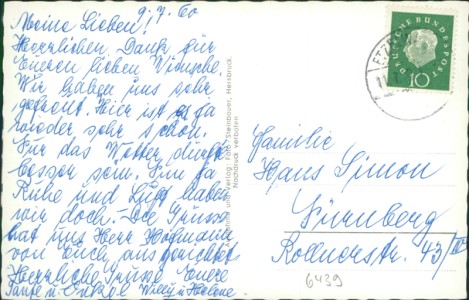 9.7.60
Meine Lieben!
Herzlichen Dank für
Eueren lieben Wünsche.
Wir haben uns sehr
gefreut. Hier ist es ja
wieder sehr schön.
Für das Wetter dürft
besser sein. Ja
Ruhe und Luft haben
wir doch. Die Grüsse
hat uns Herr Hofmann
von Euch ausgerichtet
Herzliche Grüsse Euere
Tante u. Onkel Willy u. Helene
Verlag Foto-Steinbauer, Hersbruck.
Nachdruck verboten
DEUTSCHE BUNDESPOST
10
Familie
Hans Simon
Nürnberg
Rollnerstr. 43/III
6439